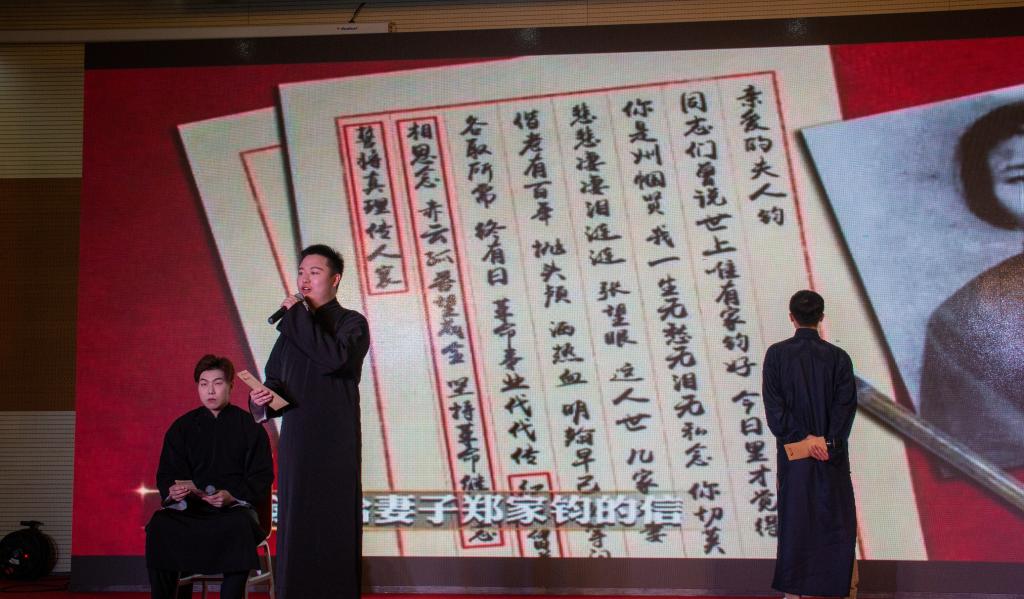 亲爱的夫人钧
同志们曾说世上唯有家钧好 今日里才觉得
你是巾帼贤 我一生无愁无泪无私念 你切莫
悲悲凄凄泪涟涟 张望眼 这人世 几家 妻
偕老有百年 抛头颅 洒热血 明翰早已等闲
各取所需 终有日 革命事业代代传 红 留
相思念 赤云孤吾望成全 坚持革命继 志
誓将真理传人寰
给妻子郑家钧的信